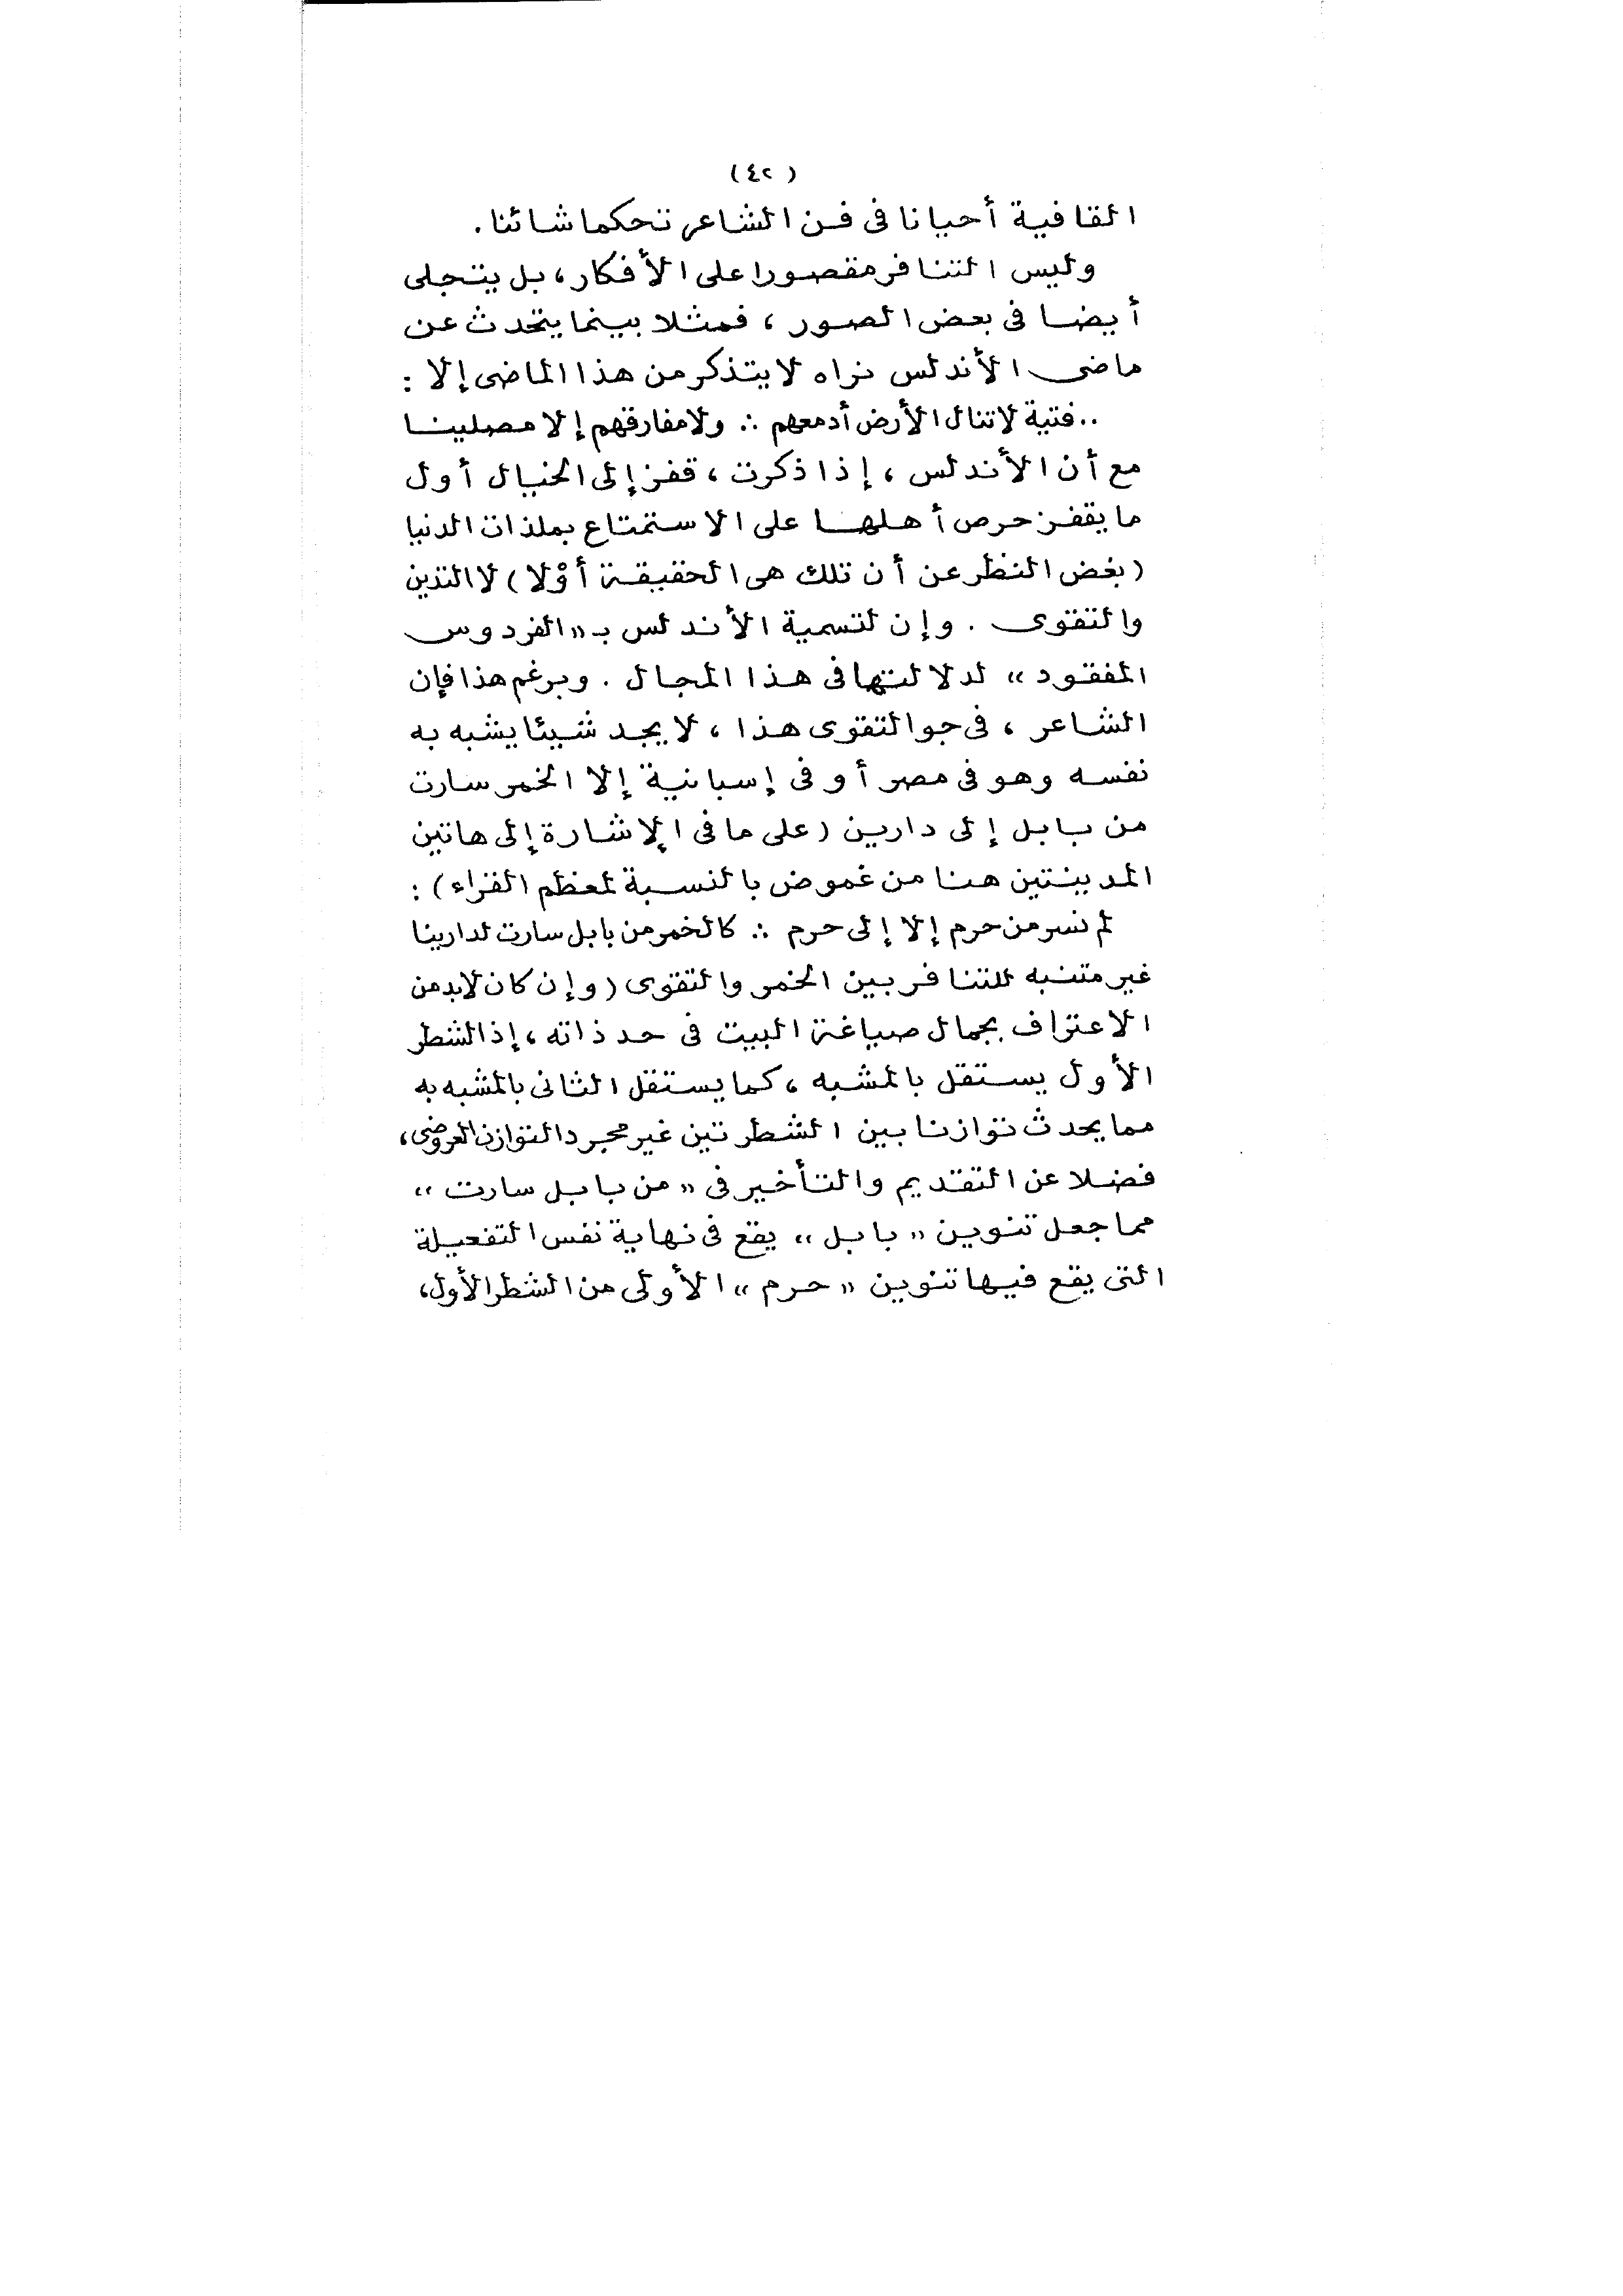 (٤٢)
القافية أحيانا فى فن الشاعر تحكما شائنا.
وليس التنافر مقصورا على الأفكار، بل يتجلى
أيضا فى بعض الصور، فمثلا بينما يتحدث عن
ماضى الأندلس نراه لا يتذكر من هذا الماضى إلا :
..فتية لا تنال الأرض أدمعهم ∴ ولا مفارقهم إلا مصلينا
مع أن الأندلس، إذا ذكرت، قفز إلى الخيال أول
ما يقفز حرص أهلها على الاستمتاع بملذات الدنيا
(بغض النظر عن أن تلك هى الحقيقة أوْلا) لا التدين
والتقوى. وإن لتسمية الأندلس بـ «الفردوس
المفقود» لدلالتها فى هذا المجال. وبرغم هذا فإن
الشاعر، فى جو التقوى هذا، لا يجد شيئا يشبه به
نفسه وهو فى مصر أو فى إسبانية إلا الخمر سارت
من بابل إلى دارين (على ما فى الإشارة إلى هاتين
المدينتين هنا من غموض بالنسبة لمعظم القراء) :
لم نسر من حرم إلا إلى حرم ∴ كالخمر من بابل سارت لدارينا
غير متنبه للتنافر بين الخمر والتقوى (وإن كان لابد من
الاعتراف بجمال صياغة البيت فى حد ذاته، إذ الشطر
الأول يستقل بالمشبه، كما يستقل الثانى بالمشبه به
مما يحدث توازنا بين الشطرتين غير مجرد التوازن العروضى،
فضلا عن التقديم والتأخير فى «من بابل سارت»
مما جعل تنوين «بابل» يقع فى نهاية نفس التفعيلة
التى يقع فيها تنوين «حرم» الأولى من الشطر الأول،